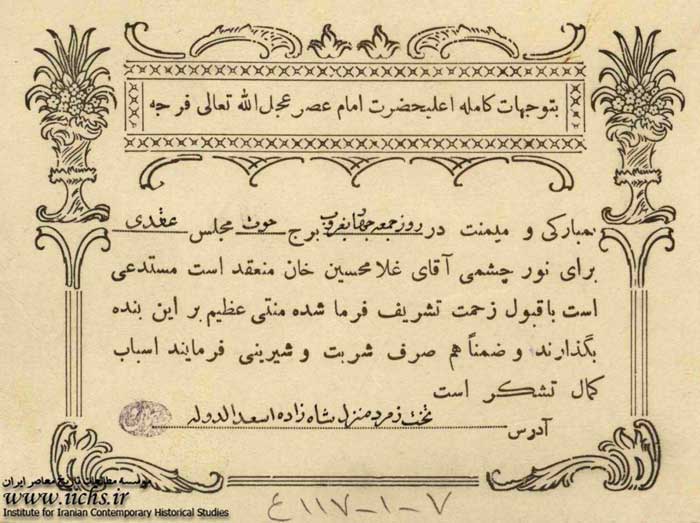 بتوجهات کامله اعلیحضرت امام عصر عجل الله تعالی فرجه
بمبارکی و میمنت در روز جمعه بغروب برج حوت مجلس عقدی
برای نور چشمی آقای غلامحسین خان منعقد است مستدعی
است باقبول زحمت تشریف فرما شده منتی عظیم بر این بنده
بگذارند و ضمناً هم صرف شربت و شیرینی فرمایند اسباب
کمال تشکر است
آدرس تخت زمرد منزل شاه زاده اسعد الدوله
موسسه مطالعات تاریخ معاصر ایران
www.iichs.ir
Institute for Iranian Contemporary Historical Studies
۷-۱-۱۱۷ ع